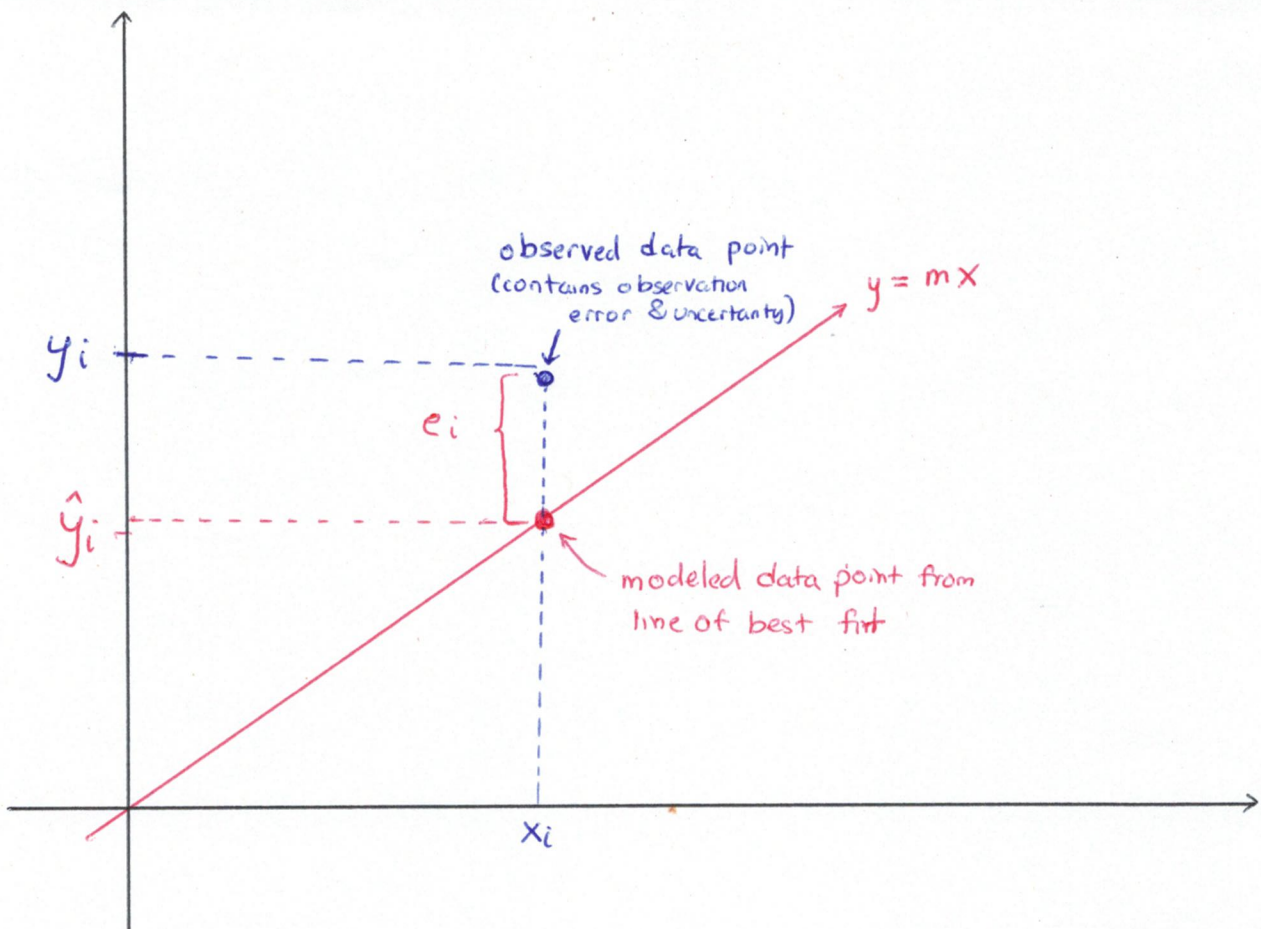 observed data point
(contains observation
error & uncertanty)
y = mx
yi
ei
ŷi
modeled data point from
line of best fit
xi